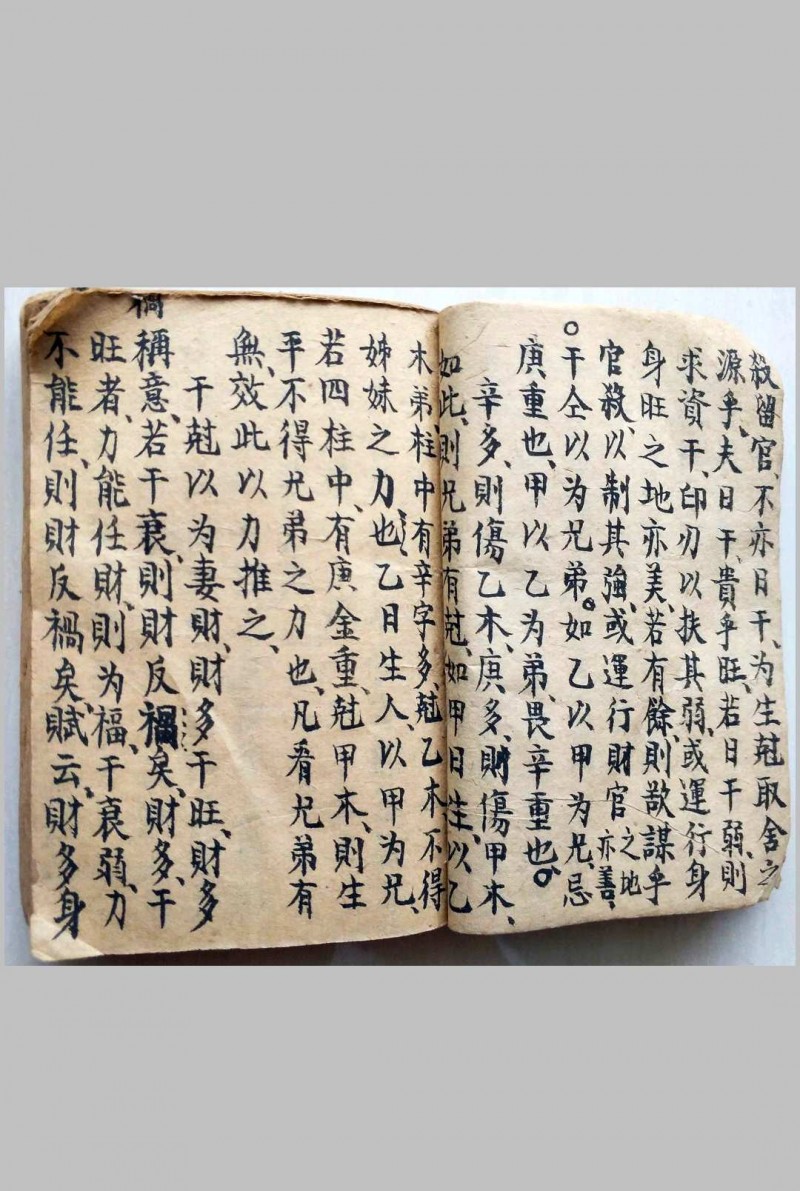 殺留官、不亦日干、为生尅取舍之
源乎、夫日干、貴乎旺、若日干弱、則
求資干、印刃以扶其弱、或運行身
身旺之地亦美、若有餘、則欲謀乎
官殺、以制其強、或運行財官之地亦善、
○干仝以为兄弟。如乙以甲为兄、忌
庚重也、甲以乙为弟、畏辛重也。
辛多、則傷乙木、庚多、則傷甲木、
如此、則兄弟有尅、如甲日生、以乙
木弟柱中有辛字多、尅乙木不得
姊妹之力也、乙日生人、以甲为兄、
若四柱中、有庚金重、尅甲木、則生
平不得兄弟之力也、凡看兄弟有
無、效此以力推之、
干尅以为妻財、財多干旺、財多
稱意、若干衰、則財反禍矣、財多、干
旺者、力能任財、則为福、干衰弱、力
不能任、則財反禍矣、賦云、財多身
禍